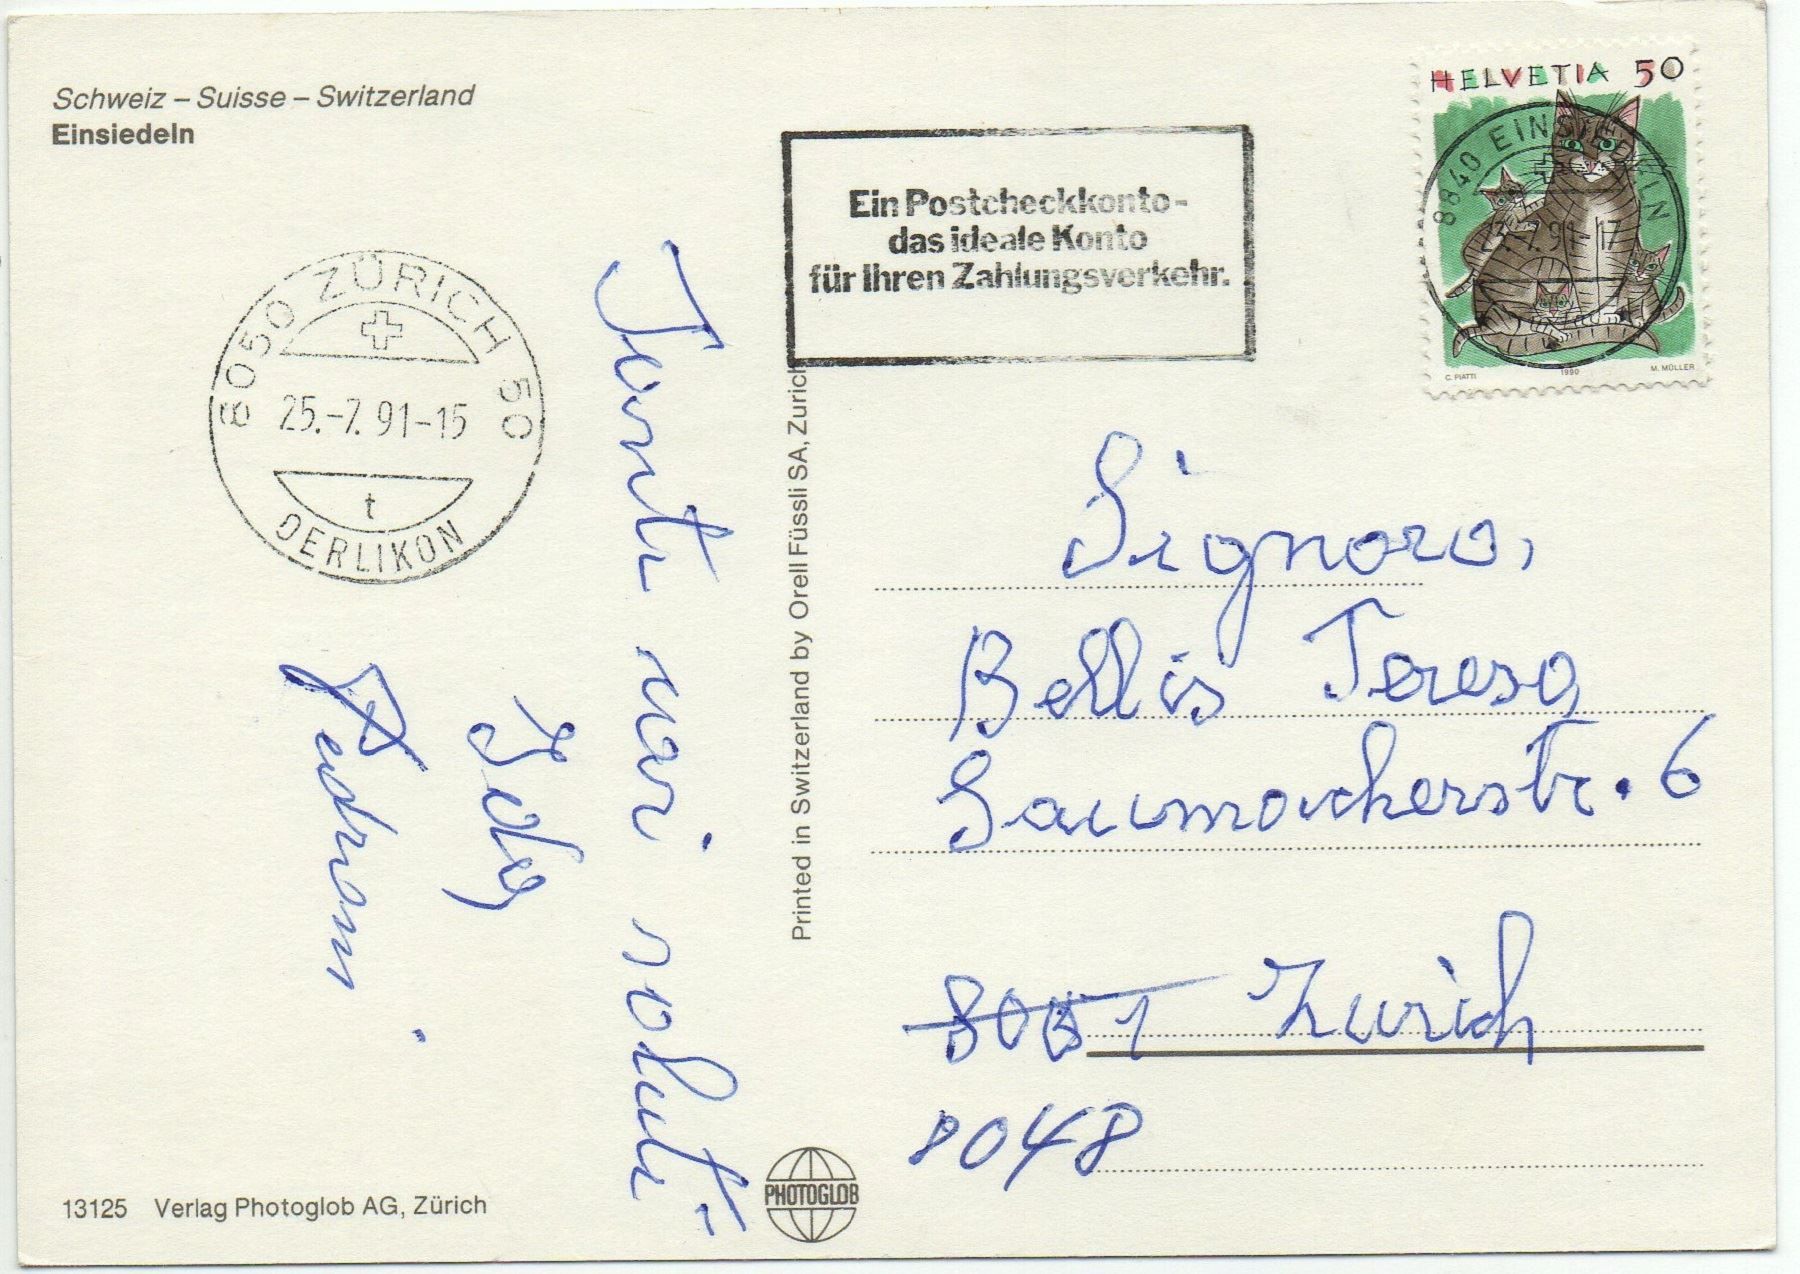 Schweiz – Suisse – Switzerland
Einsiedeln
Ein Postcheckkonto-
das ideale Konto
für Ihren Zahlungsverkehr.
HELVETIA 50
8840 EINSIEDELN
C. PIATTI 1990 M. MÜLLER
8050 ZÜRICH 50
25.-7.91-15
t
OERLIKON
Tanti cari saluti
Ida
Pedroni
Printed in Switzerland by Orell Füssli SA, Zurich
Signora,
Bellis Teresa
Saumackerstr. 6
Zurich
8048
13125 Verlag Photoglob AG, Zürich
PHOTOGLOB